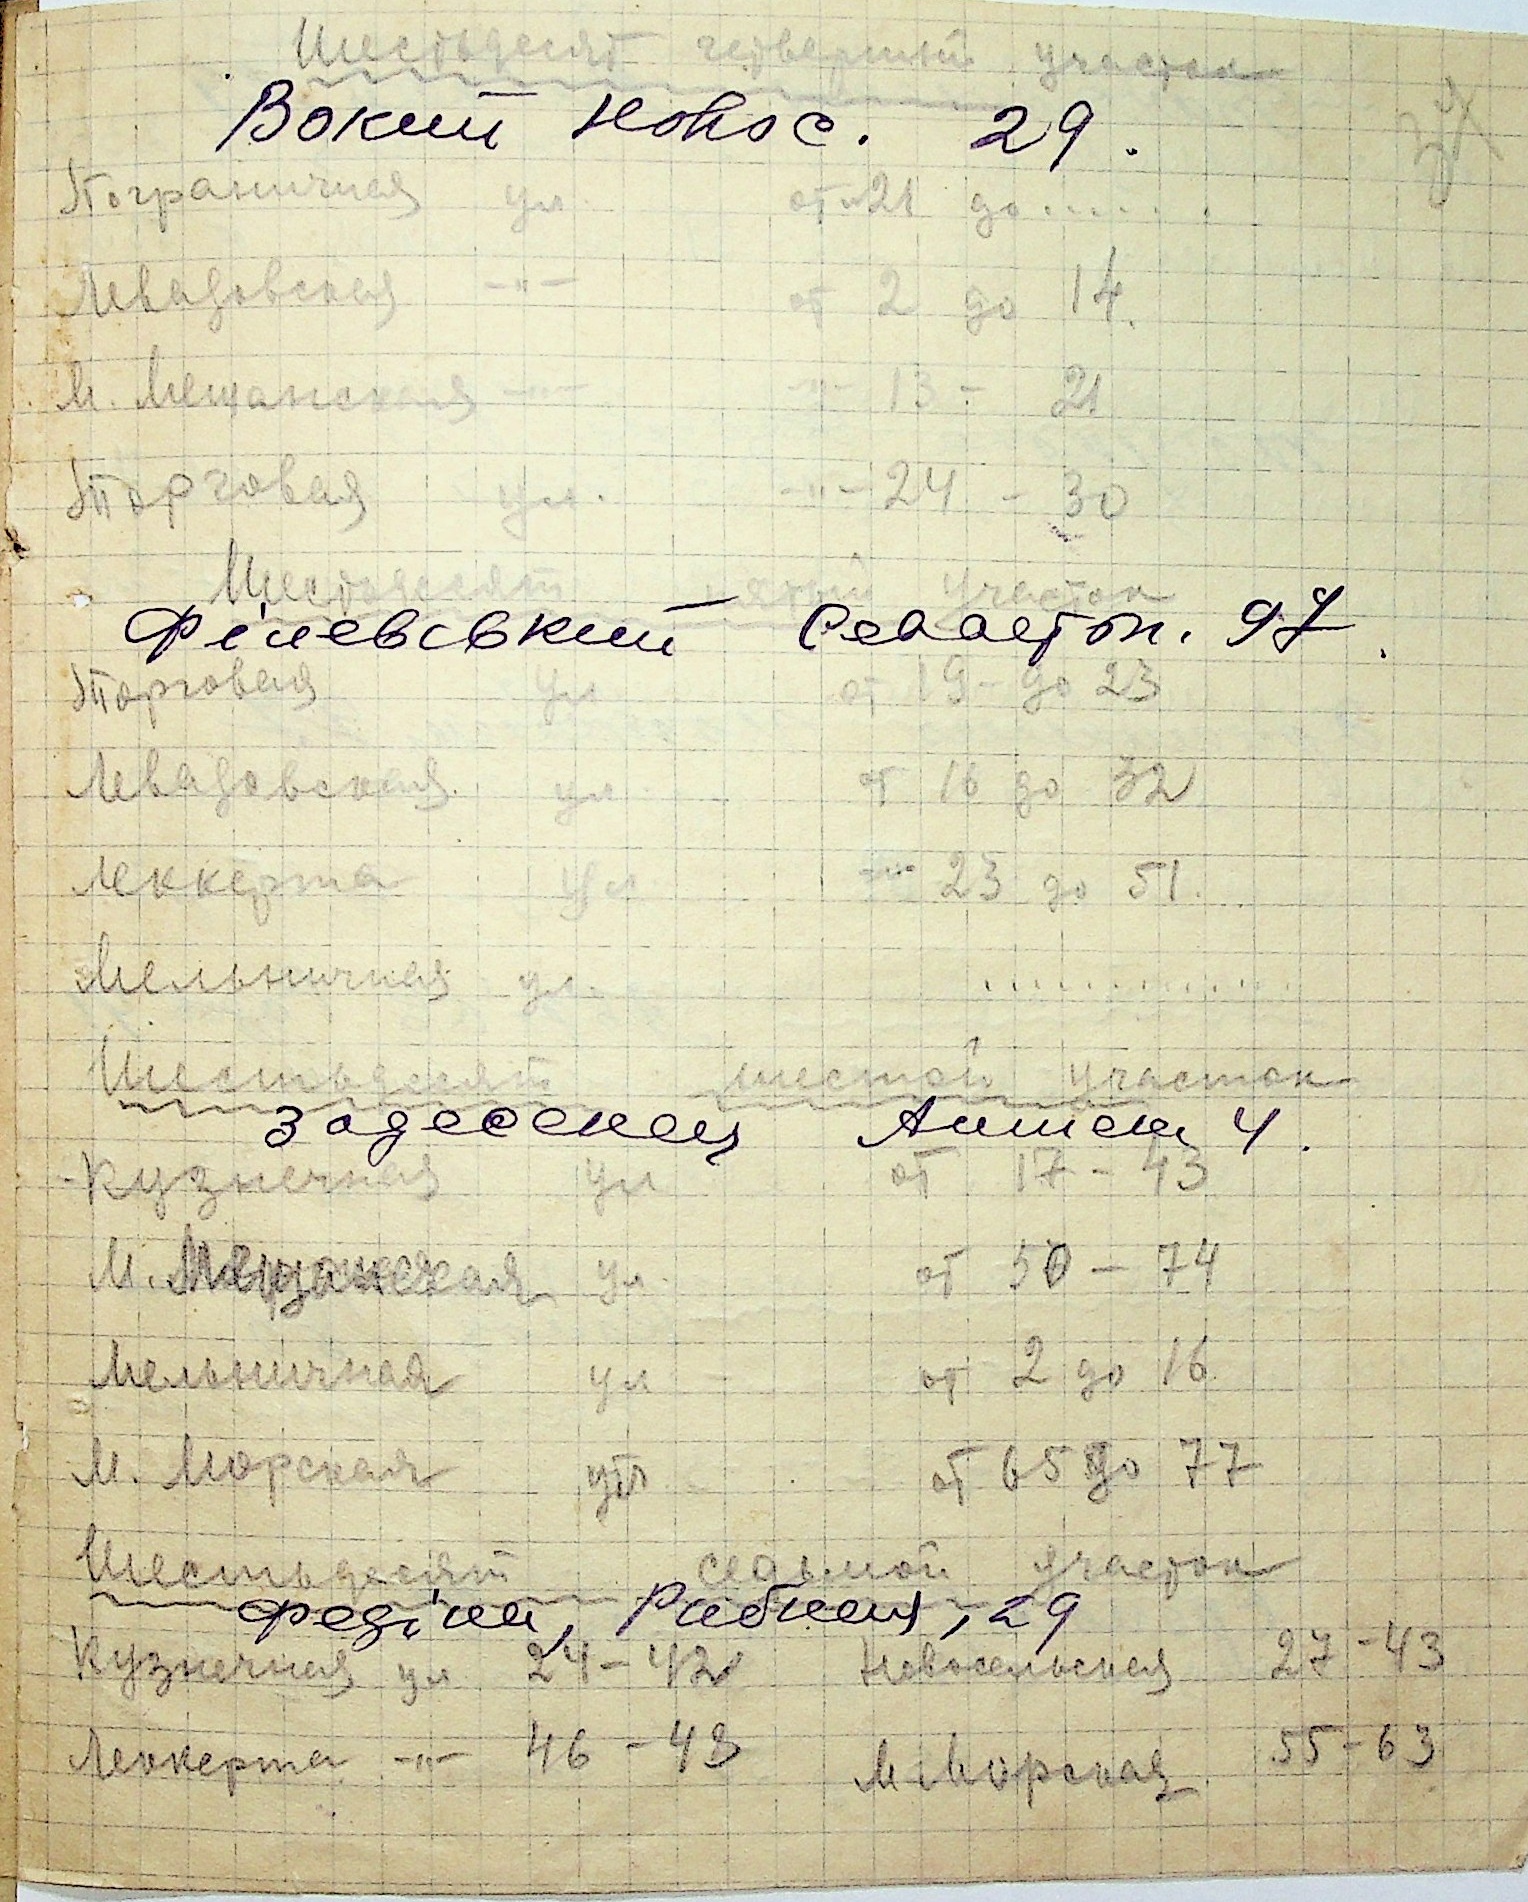 Шестьдесят четвертый участок
Вокий Новос. 29.
Пограничная ул. от 21 до ......
Левадовская -"- от 2 до 14.
М. Мещанская -"- -"- 13 - 21
Торговая ул. -"- 24 - 30
Шестьдесят пятый участок
Філевський Севастоп. 97.
Торговая ул от 19 - до 23
Левадовская ул. от 16 до 32
Леккерта ул. -"- 23 до 51.
Мельничная ул. ............
Шестьдесят шестой участок
Задесенец 4.
Кузнечная ул от 17 - 43
М. Мещанская ул. от 50 - 74
Мельничная ул от 2 до 16
М. Морская ул. от 65 до 77
Шестьдесят седьмой участок
Федіна, 29
Кузнечная ул 24 - 42 Новосельская 27 - 43
Леккерта -"- 46 - 48 М. Морская 55 - 63